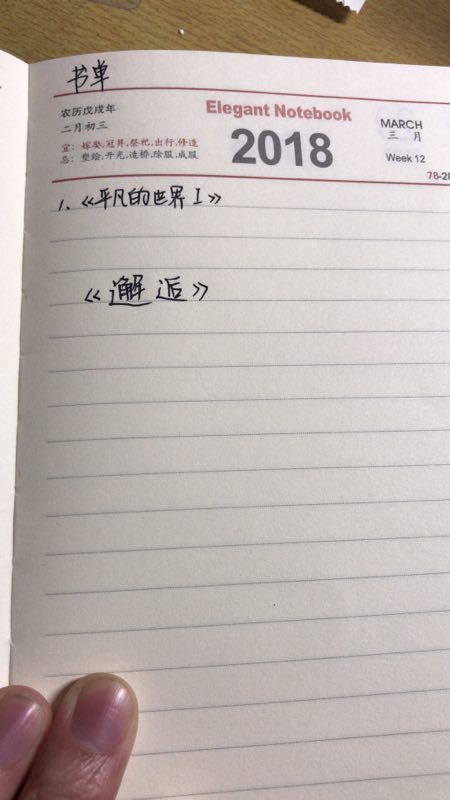 书单
农历戊戌年
二月初三
宜：嫁娶,冠笄,祭祀,出行,修造
忌：塑绘,开光,造桥,除服,成服
Elegant Notebook
2018
MARCH
三 月
Week 12
1、《平凡的世界I》
《邂逅》